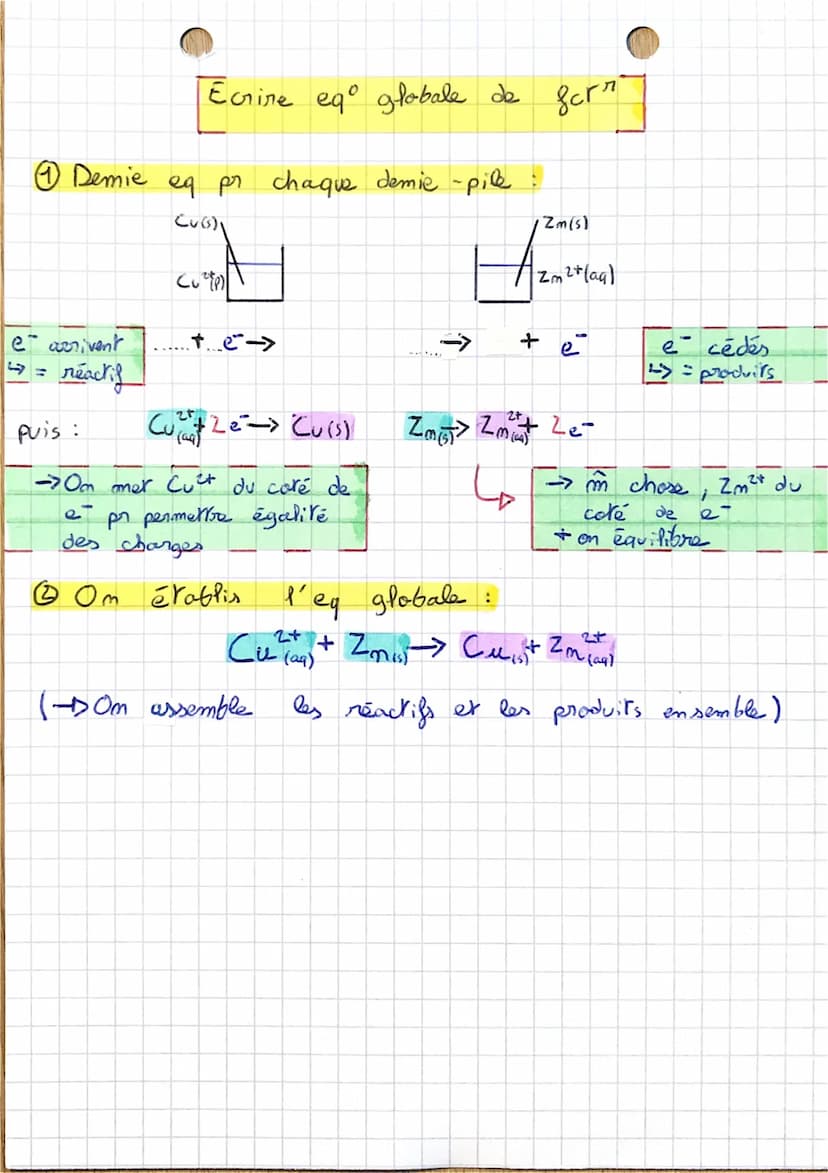 Ecrire eq° globale de fctⁿ
① Demie eq pr chaque demie-pile :
Cu(s) Zn(s)
Cu²⁺(aq) Zn²⁺(aq)
e⁻ arrivent ...... + e⁻ → ...... → + e⁻ e⁻ cédés
↳ = réactif ↳ = produits
puis : Cu²⁺(aq) + 2e⁻ → Cu(s) Zn(s) → Zn²⁺(aq) + 2e⁻
→ On met Cu²⁺ du coté de
e⁻ pr permettre égalité
des charges
→ m̂ chose, Zn²⁺ du
coté de e⁻
+ on équilibre
② On établis l'eq globale :
Cu²⁺(aq) + Zn(s) → Cu(s) + Zn²⁺(aq)
(→ On assemble les réactifs et les produits ensemble)